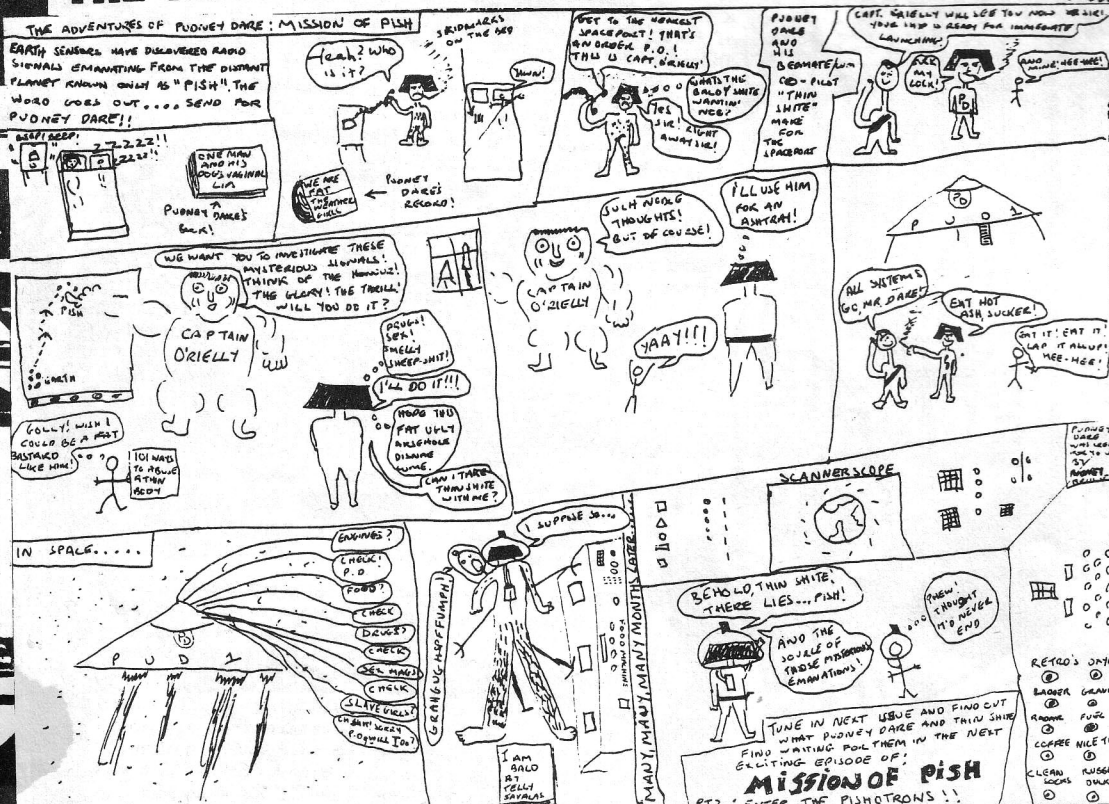 THE ADVENTURES OF PUDNEY DARE: MISSION OF PISH
EARTH SENSORS HAVE DISCOVERED RADIO
SIGNALS EMANATING FROM THE DISTANT
PLANET KNOWN ONLY AS "PISH"! THE
WORD GOES OUT.... SEND FOR
PUDNEY DARE!!
BEEP! BEEP!
ZZZZZZ!!
ZZZZZ!!
ONE MAN
AND HIS
DOG'S VAGINAL
PUDNEY DARE'S
BOOK!
Yeah? Who
is it?
SKIDMARKS
ON THE BED
YAWN!
WE ARE
FAT
THE WEATHER
GIRLS
PUDNEY
DARE'S
RECORD!
GET TO THE NEAREST
SPACEPORT! THAT'S
AN ORDER P.D.!
THIS IS CAPT. O'RIELLY!
WHAT'S THE
BALDY SHITE
WANTIN'
NOO?
YES
SIR! RIGHT
AWAY SIR!
PUDNEY
DARE
AND
HIS
BEDMATE/
CO-PILOT
"THIN
SHITE"
MAKE
FOR
THE
SPACEPORT
CAPT. O'RIELLY WILL SEE YOU NOW
YOUR SHIP IS READY FOR IMMEDIATE
LAUNCHING!
MY
COCK!
PD
AND
MINE! HEE-HEE!
WE WANT YOU TO INVESTIGATE THESE
MYSTERIOUS SIGNALS!
THINK OF THE HONOUR!
THE GLORY! THE THRILL!
WILL YOU DO IT?
PISH
EARTH
CAPTAIN
O'RIELLY
DRUGS!
SEX!
SMELLY
SHEEP SHIT!
I'LL DO IT!!!
HOPE THIS
FAT UGLY
ARSEHOLE
CAN I TAKE
THIN SHITE
WITH ME?
GOLLY! WISH I
COULD BE A FAT
BASTARD
LIKE HIM!
101 WAYS
TO ABUSE
A THIN
BODY
SUCH NOBLE
THOUGHTS!
BUT OF COURSE!
CAPTAIN
O'RIELLY
I'LL USE HIM
FOR AN
ASHTRAY!
YAAY!!!
PD
P U D 1
ALL SYSTEMS
GO, MR. DARE!
EAT HOT
ASH, SUCKER!
EAT IT! EAT IT!
LAP IT ALL UP!
HEE-HEE!
IN SPACE.....
ENGINES?
CHECK!
P.D
FOOD?
CHECK
DRUGS?
CHECK
SEX MAGS
CHECK
SLAVE GIRLS?
SORRY
P.D. WILL I DO?
PD
P U D 1
I SUPPOSE SO...
I AM
BALD
BY
TELLY
SAVALAS
MANY, MANY, MANY MONTHS LATER...
SCANNERSCOPE
PUDNEY
DARE
BY
BEHOLD, THIN SHITE!
THERE LIES... PISH!
AND THE
SOURCE OF
THOSE MYSTERIOUS
EMANATIONS!
PHEW!
THOUGHT
H'D NEVER
END
RETRO'S
RADAR FUEL
COFFEE NICE
CLEAN
SOCKS
TUNE IN NEXT ISSUE AND FIND OUT
WHAT PUDNEY DARE AND THIN SHITE
FIND WAITING FOR THEM IN THE NEXT
EXCITING EPISODE OF:
MISSION OF PISH
PT2: ENTER THE PISHOTRONS!!